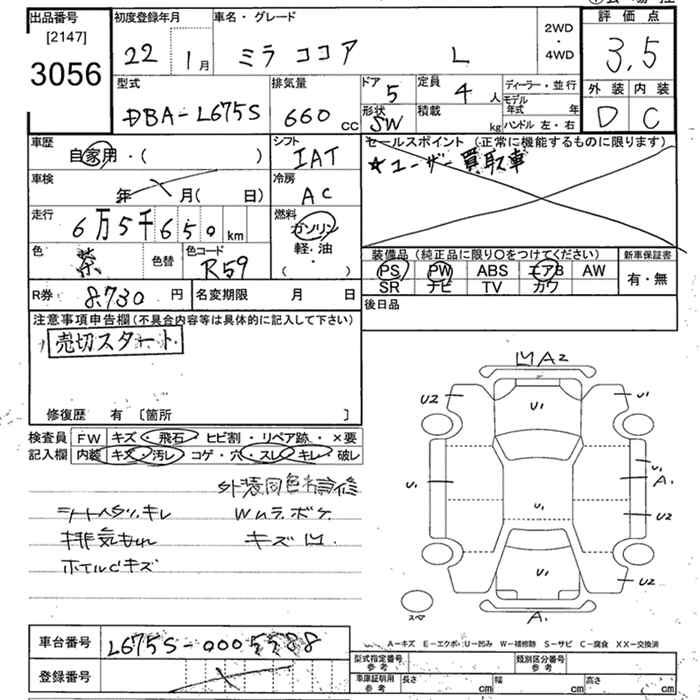 出品番号 初度登録年月 車名・グレード 2WD・4WD 評価点
[2147] 22 1月 ミラ ココア L 3.5
3056
型式 排気量 ドア 5 定員 4人 ディーラー・並行 外装 内装
DBA-L675S 660cc 形状 SW 積載 kg モデル年式 年 ハンドル 左・右 D C
車歴 自家用・( ) シフト IAT セールスポイント (正常に機能するものに限ります)
☆ユーザー買取車
車検 年 月( 日) 冷房 AC
走行 6万5千650km 燃料 ガソリン 軽・油・( )
色 茶 色替 色コード R59 装備品 (純正品に限り○をつけてください) 新車保証書
PS PW ABS エアB AW 有・無
SR ナビ TV カワ
R券 8730円 名変期限 月 日 後日品
注意事項申告欄(不具合内容等は具体的に記入して下さい)
売切スタート
修復歴 有 [箇所 ]
検査員 FW キズ・飛石・ヒビ割・リペア跡・×要
記入欄 内装 キズ・汚レ・コゲ・穴・スレ・キレ・破レ
シートヘタリ.キレ Wムラ.ボケ
排気もれ キズ凹.
ホイルCキズ
凹A2
U2 U1 U1
U1 A1
U1 U2
U1 U2
スペア A1
A-キズ E-エクボ・U-凹み W-補修跡 S-サビ C-腐食 XX-交換済
車台番号 L675S-0005588
登録番号
型式指定番号 参考 類別区分番号 参考
車庫証明用 参考 長さ cm 幅 cm 高さ cm